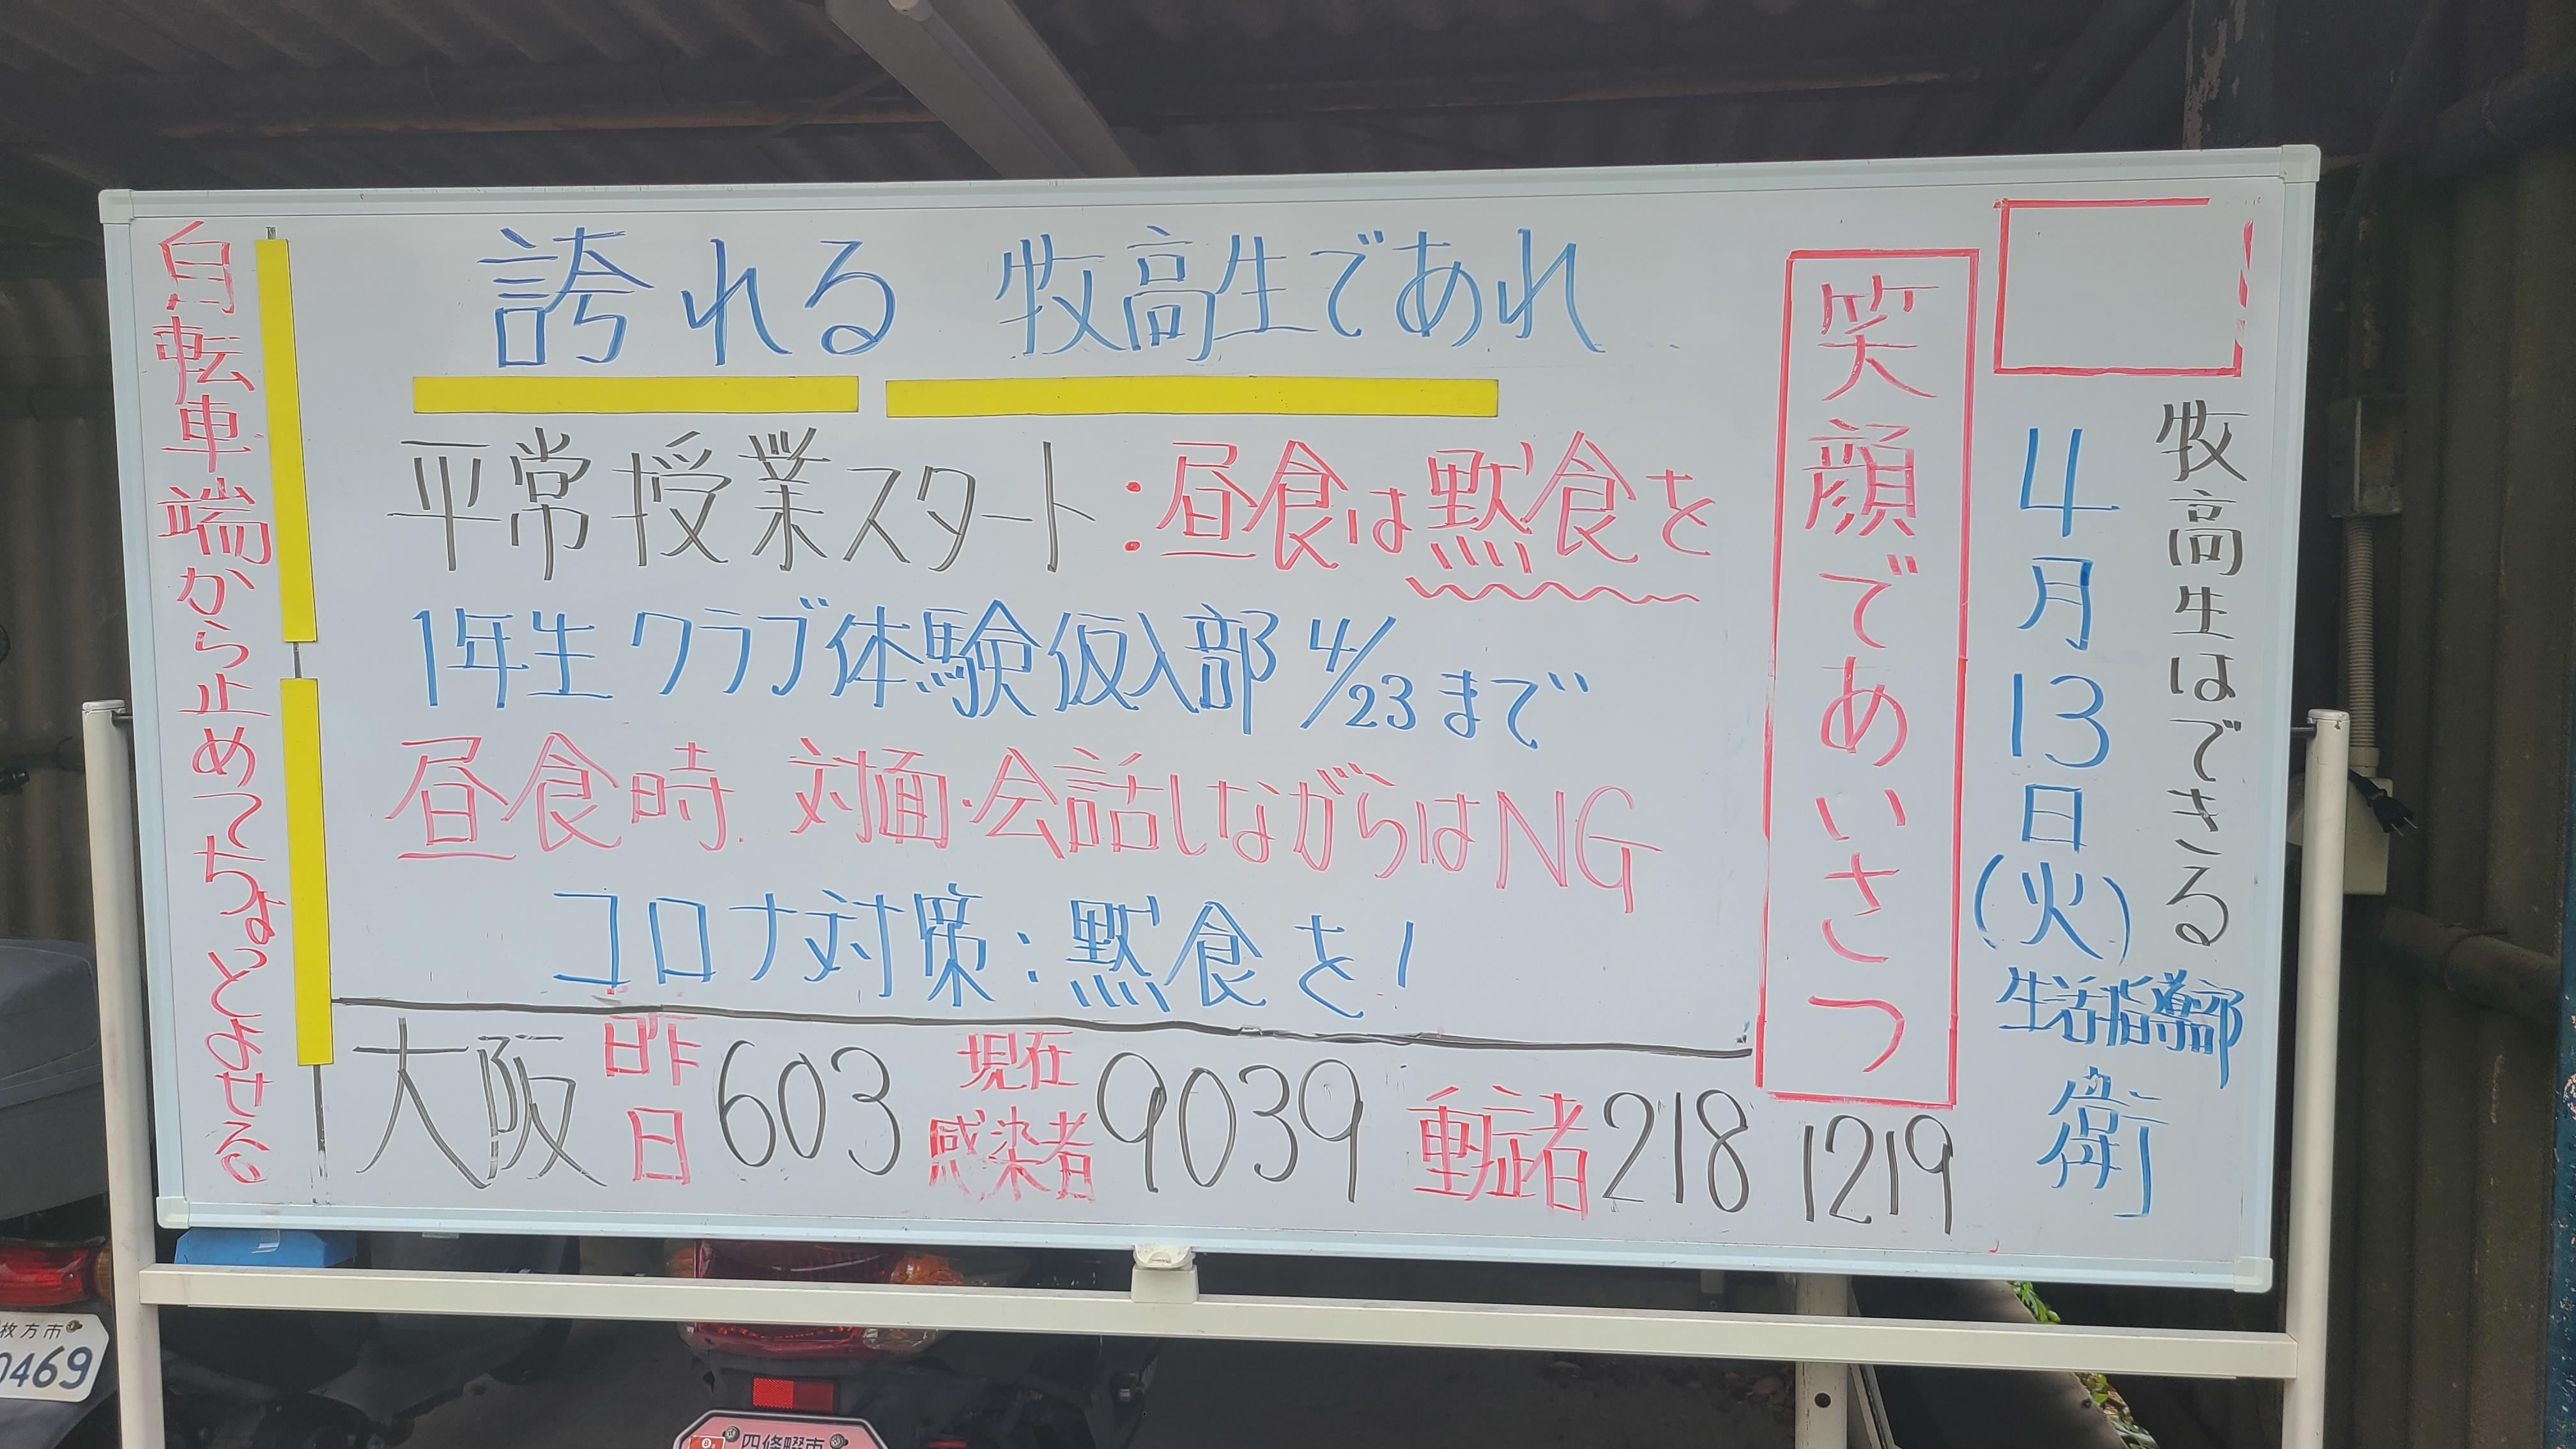 牧高生はできる
4月13日(火)
生活指導部
衛
笑顔であいさつ
誇れる 牧高生であれ
平常授業スタート:昼食は黙食を
1年生 クラブ体験仮入部 4/23まで
昼食時 対面・会話しながらはNG
コロナ対策:黙食を!
大阪 昨日 603 現在感染者 9039 重症者 218 1219
自転車端から止めてちょとよせる
枚方市
0469
四條畷市